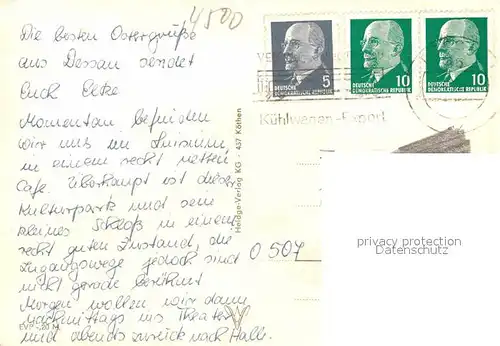 4500
Die besten Ostergrüße
aus Dessau sendet
Euch Elke
Momentan befinden
wir uns im Luisium,
in einem recht netten
Cafe. Überhaupt ist dieser
Kulturpark und sein
kleines Schloß in einem
recht guten Zustand, die
Zugangswege jedoch sind
nicht gerade berühmt
Morgen wollen wir dann
Nachmittags ins Theater
und abends zurück nach Halle.
EVP -,20 M
Heldge-Verlag KG · 437 Köthen
5
DEUTSCHE
DEMOKRATISCHE REPUBLIK
10
DEUTSCHE
DEMOKRATISCHE REPUBLIK
10
DEUTSCHE
DEMOKRATISCHE REPUBLIK
Kühlwagen-Export
O 507
privacy protection
Datenschutz